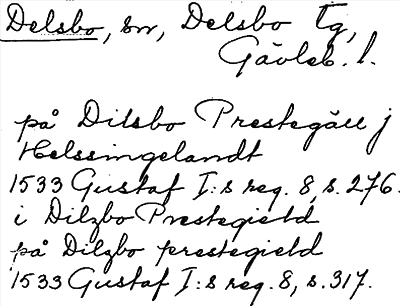 Delsbo, sn, Delsbo tg,
Gävleb. l.
på Dilsbo Prestegäll j
Helssingelandt
1533 Gustaf I:s reg. 8, s. 276.
i Dilzbo Prestegield
på Dilzbo prestegield
1533 Gustaf I:s reg. 8, s. 317.